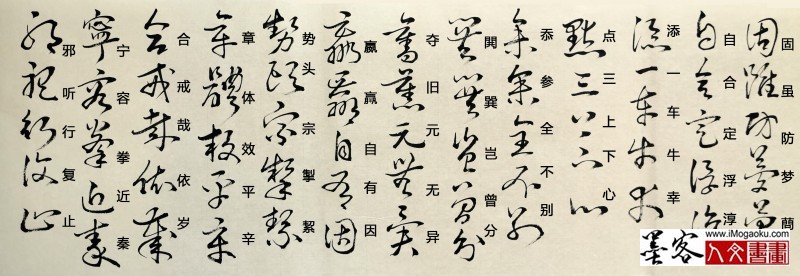 固虽防梦蔄
自合定浮淳
添一车牛幸
点三上下心
忝参全不别
閧巽岂曾分
夺旧元无异
赢羸自有因
势头宗掣絜
章体效平辛
合戒哉依岁
宁容拳近秦
邪听行复止
www.iMogaoku.com
墨客 人文書畫